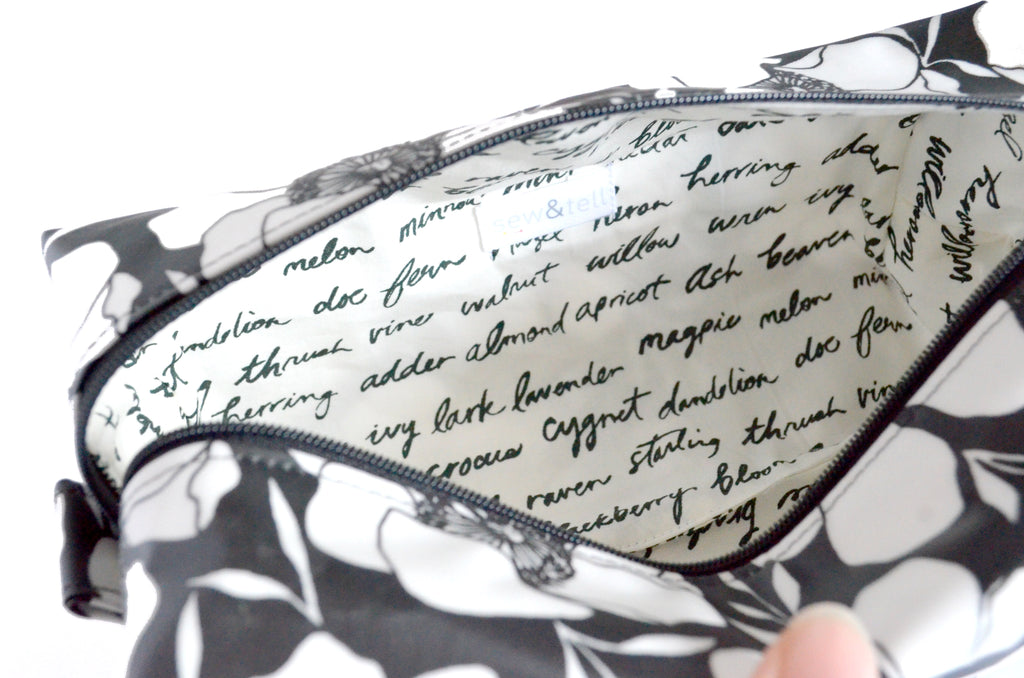 minnow
sew&tell
heron
herring adder
melon
dandelion doe fern
thrush vine walnut willow wren ivy
herring adder almond apricot ash beaver
ivy lark lavender magpie melon
crocus cygnet dandelion doe fern
raven starling thrush vine
blackberry bloom
willow